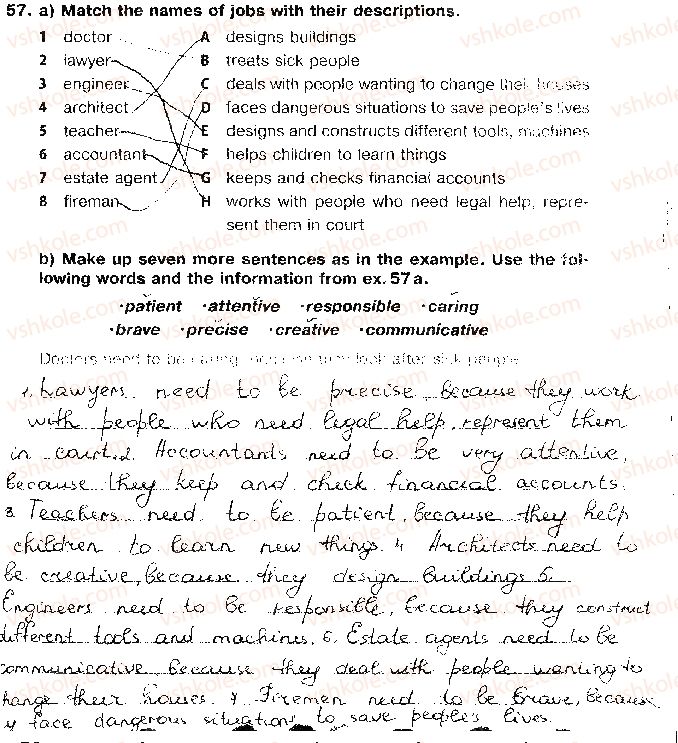 57. a) Match the names of jobs with their descriptions.
1 doctor A designs buildings
2 lawyer B treats sick people
3 engineer C deals with people wanting to change their houses
4 architect D faces dangerous situations to save people's lives
5 teacher E designs and constructs different tools, machines
6 accountant F helps children to learn things
7 estate agent G keeps and checks financial accounts
8 fireman H works with people who need legal help, repre-
sent them in court
b) Make up seven more sentences as in the example. Use the fol-
lowing words and the information from ex. 57a.
·patient ·attentive ·responsible ·caring
·brave ·precise ·creative ·communicative
Doctors need to be caring, because they look after sick people
1. Lawyers need to be precise because they work
with people who need legal help, represent them
in court. 2. Accountants need to be very attentive,
because they keep and check financial accounts.
3. Teachers need to be patient, because they help
children to learn new things. 4. Architects need to
be creative, because they design buildings 5.
Engineers need to be responsible, because they construct
different tools and machines. 6. Estate agents need to be
communicative because they deal with people wanting to
hange their houses. 7 Firemen need to be brave, because
y face dangerous situations to save people's lives.
vshkole.com